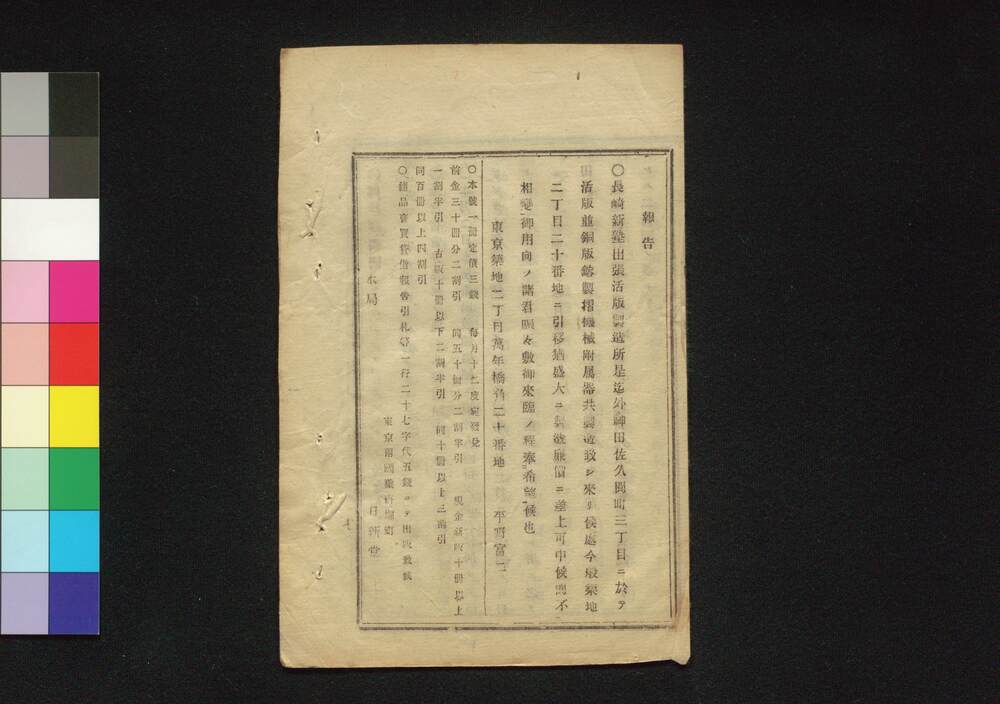 報告
〇長崎新塾出張活版製造所是迄外神田佐久間町三丁目ニ於テ
活版並銅版鎔製摺機械附属器共製造致シ來リ候處今般築地
二丁目二十番地ニ引移猶盛大ニ製造廉價ニ差上可申候間不
相變御用向ノ諸君賑々敷御來臨ノ程奉希望候也
東京築地二丁目萬年橋角二十番地 平野富二
〇本號一冊定價三錢 毎月十二度宛發兌
前金三十冊分二割引 同五十冊分二割半引 現金新版十冊以上
一割半引 古版十冊以下二割半引 同十冊以上三割引
同百冊以上四割引
〇諸品賣買貸借報告引札等一行二十七字代五錢ヲ以テ出版致候
東京兩國
本局 日新堂